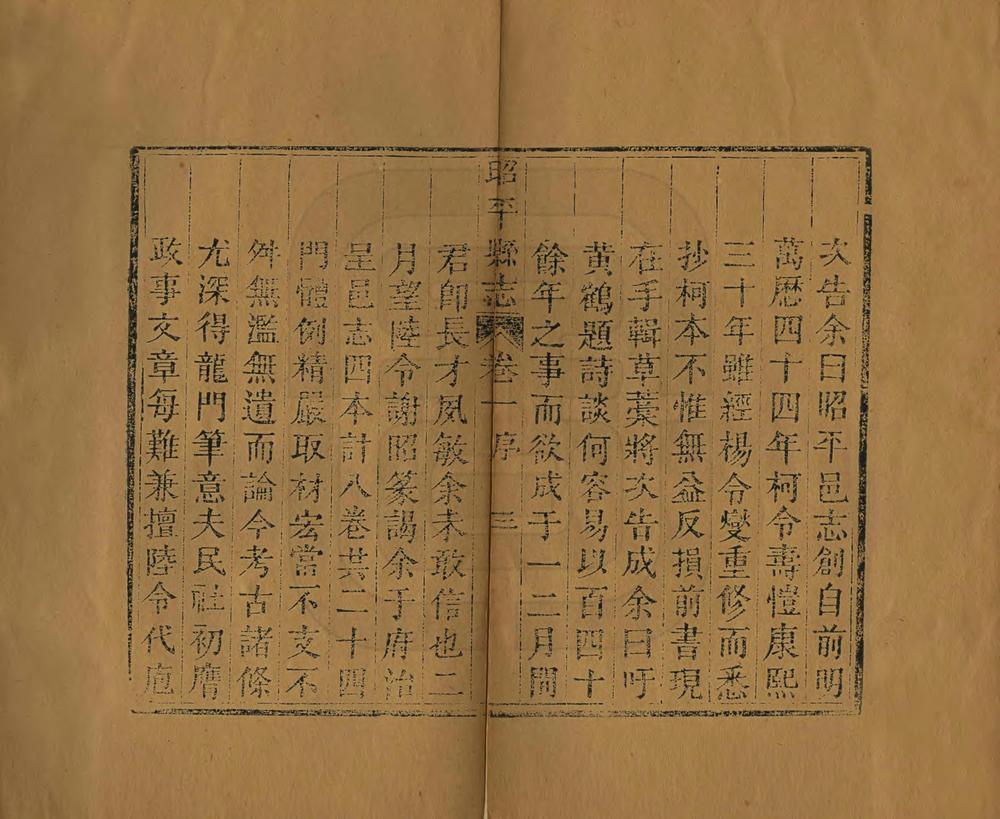 次告余曰昭平邑志創自前明
萬曆四十四年柯令壽愷康熙
三十年雖經楊令燮重修而悉
抄柯本不惟無益反損前書現
在手輯草藁將次告成余曰吁
黃鶴題詩談何容易以百四十
餘年之事而欲成于一二月間
昭平縣志 卷一 序 三
君即長才夙敏余未敢信也二
月望陸令謝昭篆謁余于府治
呈邑志四本計八卷共二十四
門體例精嚴取材宏當不支不
舛無濫無遺而論今考古諸條
尤深得龍門筆意夫民社初膺
政事文章每難兼擅陸令代庖